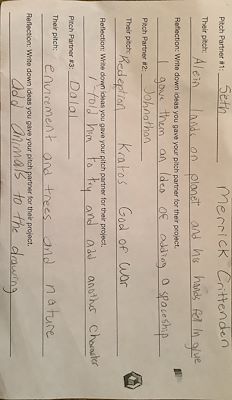 Pitch Partner #1: Seth Merrick Crittenden
Their pitch: Alein lands on planet and his hands fell in glue
Reflection: Write down ideas you gave your pitch partner for their project.
I gave them an idea of adding a spaceship
Pitch Partner #2: Johnathon
Their pitch: Redemption Kratos God of war
Reflection: Write down ideas you gave your pitch partner for their project.
I told him to try and add another character
Pitch Partner #3: Dalal
Their pitch: envirement and trees and nature
Reflection: Write down ideas you gave your pitch partner for their project.
add animals to the drawing